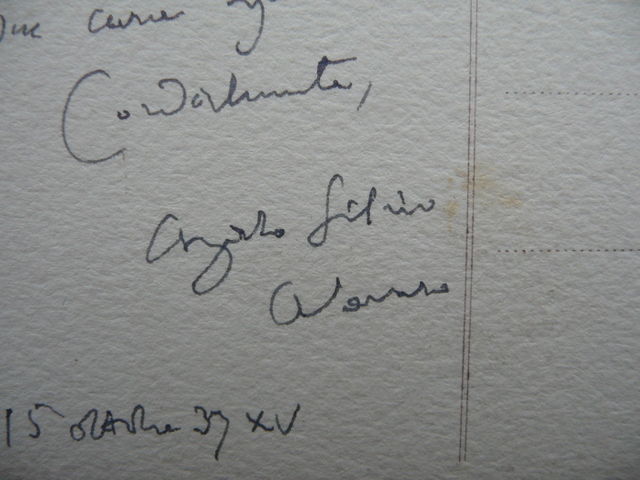 cara
Cordialmente,
Angiolo Silvio
Novaro
15 ottobre 37 XV